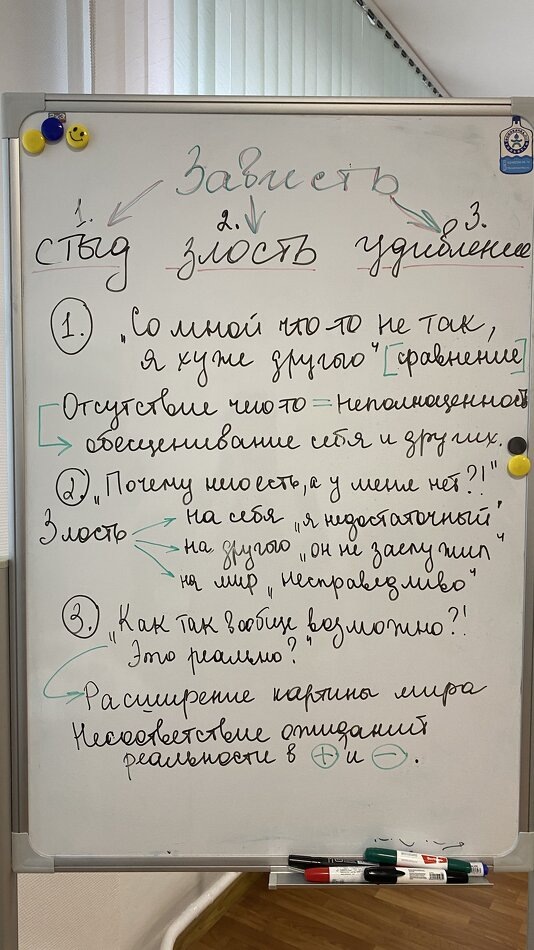 Зависть
1. 2. 3.
стыд злость удивление
1. „Со мной что-то не так,
я хуже другого" [сравнение]
Отсутствие чего то = неполноценность
обесценивание себя и других.
2. „Почему него есть, а у меня нет?!"
Злость
на себя „я недостаточный"
на другого „он не заслужил"
на мир „несправедливо"
3. „Как так вообще возможно?!
Это реально?"
Расширение картины мира
Несоответствие ожиданий
реальности в + и - .